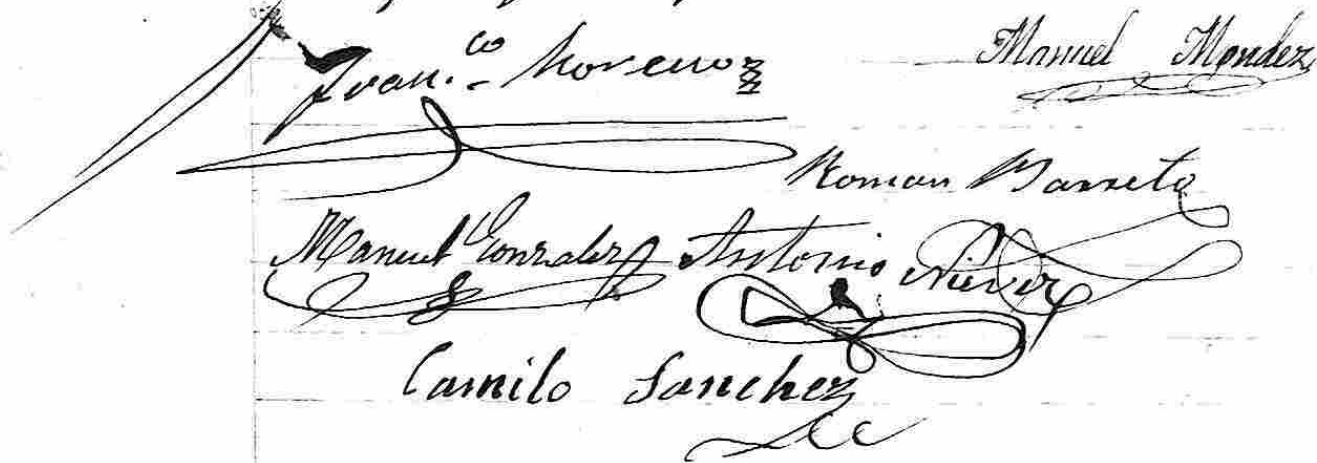 Fran.co Moreno
Manuel Mendez
Roman Barreto
Manuel Gonzalez
Antonio Nieves
Camilo Sanchez